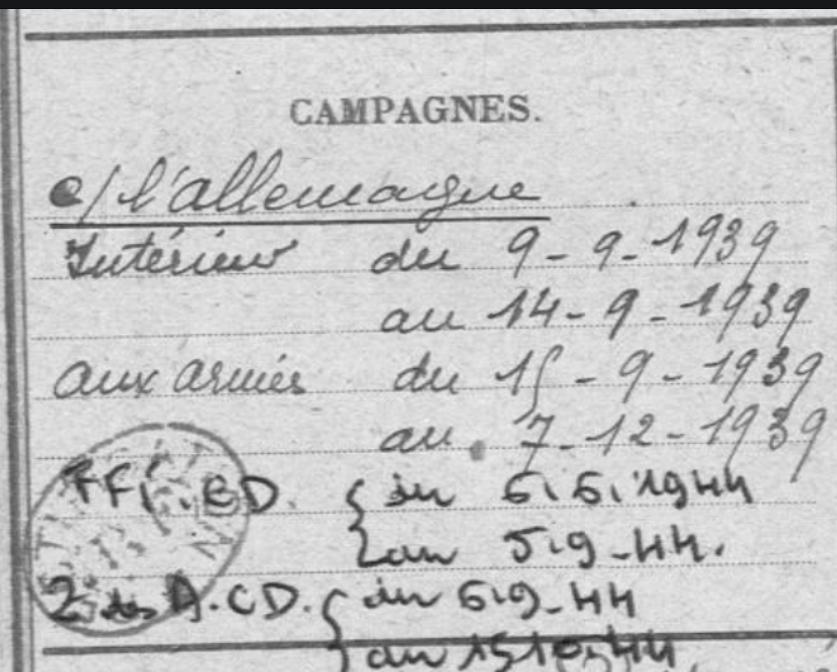 CAMPAGNES.
c/ l'allemagne
Intérieur du 9-9-1939
au 14-9-1939
aux armées du 15-9-1939
au 7-12-1939
FFi. CD. { du 6.6.1944
au 5-9-44.
2 A.CD. { du 6-9-44
au 15 10-44